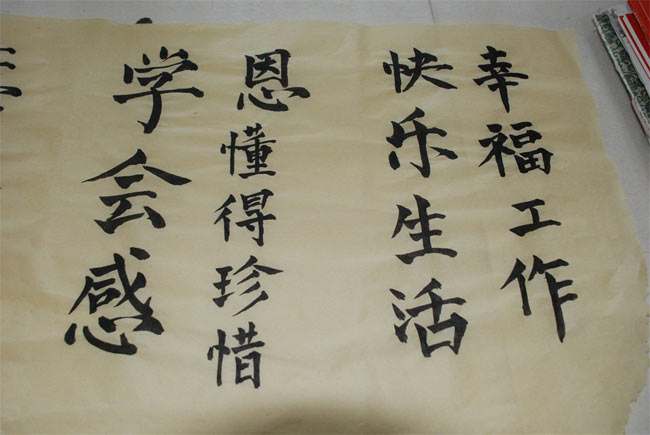 学会感
恩懂得珍惜
快乐生活
幸福工作